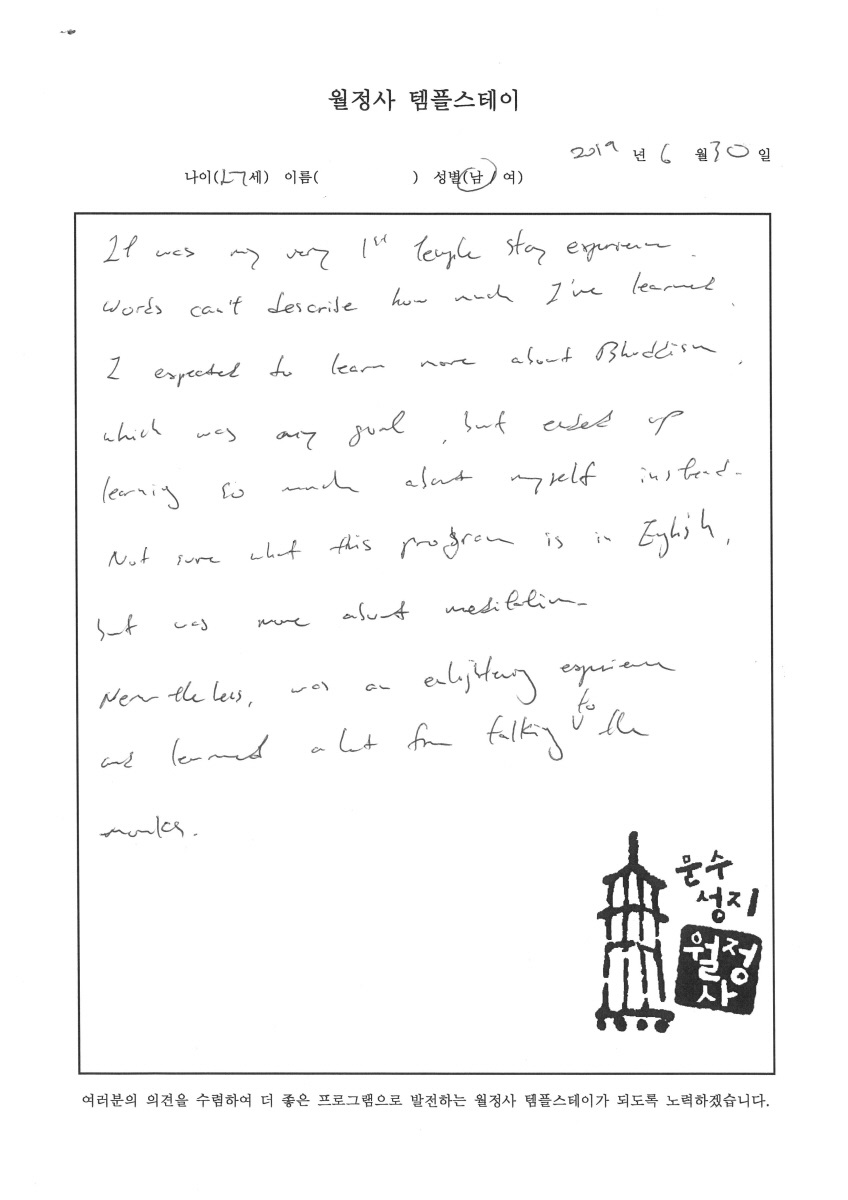 월정사 템플스테이
2019 년 6 월 30 일
나이( 세) 이름( ) 성별(남/여)
It was my very 1st temple stay experience.
Words can't describe how much I've learned.
I expected to learn more about Bhuddism,
which was my goal, but ended up
learning so much about myself instead.
Not sure what this program is in English,
but was more about meditation.
Nevertheless, was an enlightening experience
and learned a lot from talking to the
monks.
문수
성지
월정
사
여러분의 의견을 수렴하여 더 좋은 프로그램으로 발전하는 월정사 템플스테이가 되도록 노력하겠습니다.